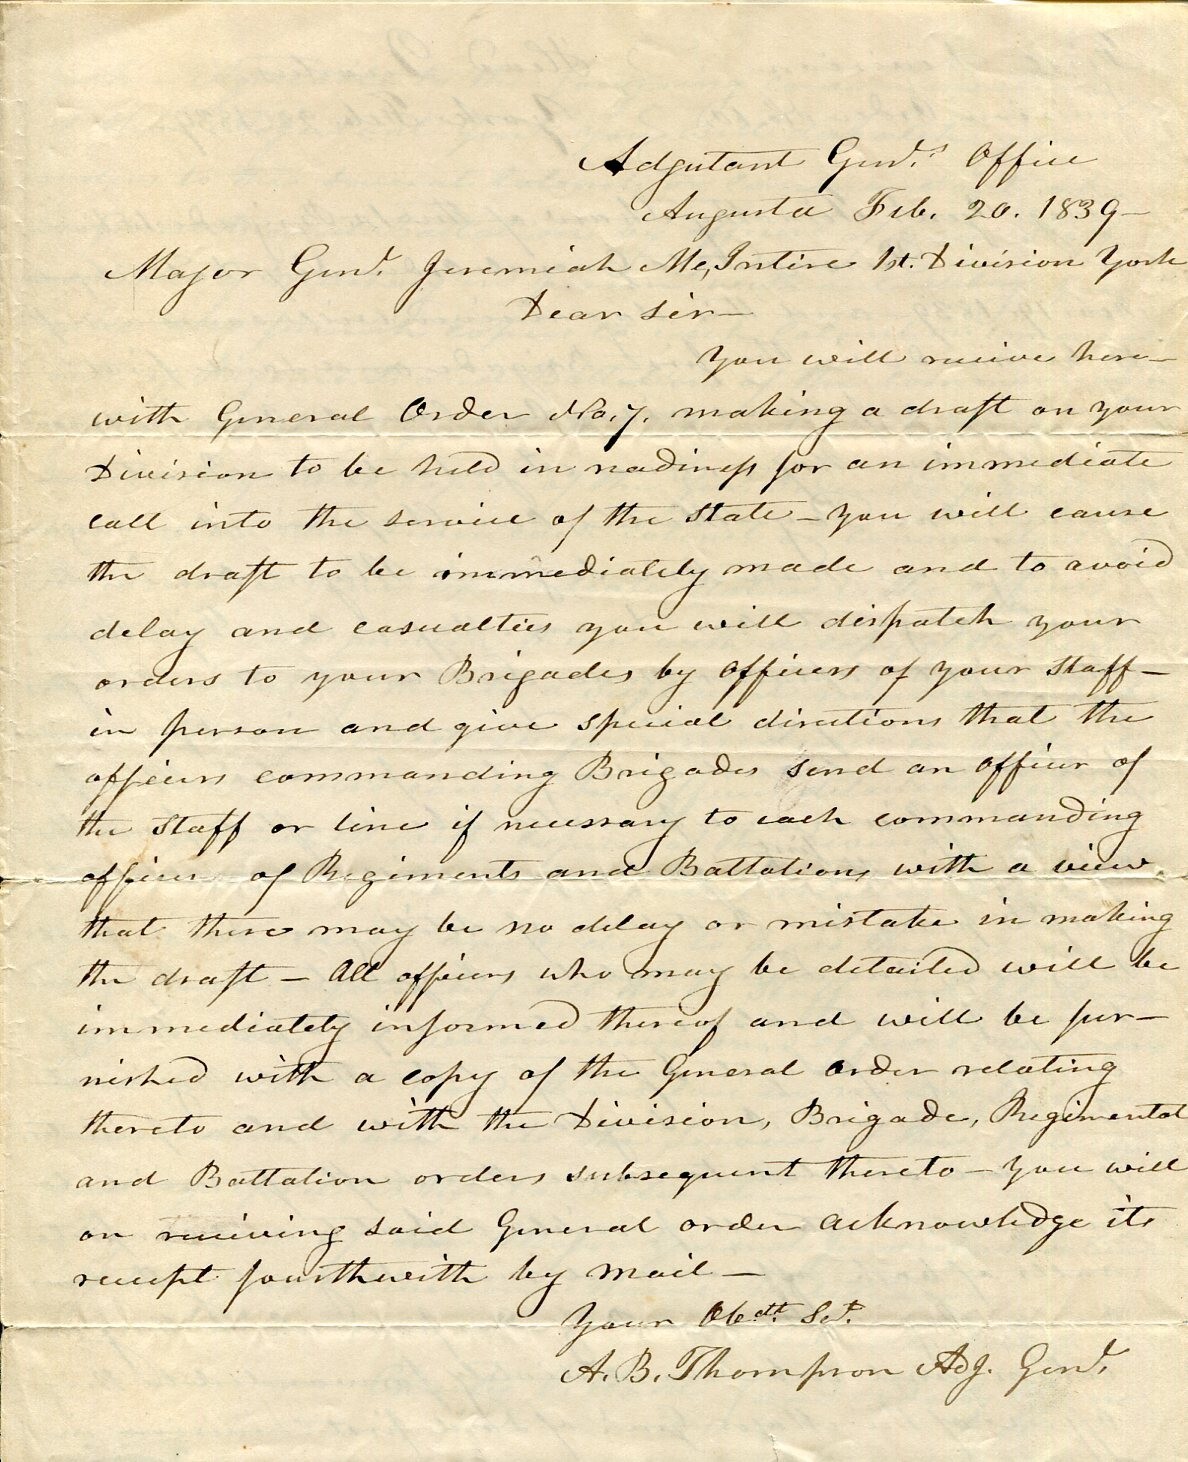 Adjutant Genl.s Office
Augusta Feb. 20. 1839—
Major Genl. Jeremiah McIntire 1st. Division York
Dear Sir—
You will receive here—
with General Order No. 7. making a draft on your
Division to be held in readiness for an immediate
call into the service of the State — you will cause
the draft to be immediately made and to avoid
delay and casualties you will dispatch your
orders to your Brigades by Officers of your Staff—
in person and give special directions that the
officers commanding Brigades send an officer of
the Staff or line if necessary to each commanding
officer of Regiments and Battalions with a view
that there may be no delay or mistake in making
the draft — All officers who may be detailed will be
immediately informed thereof and will be fur—
nished with a copy of the General order relating
thereto and with the Division, Brigade, Regimental
and Battalion orders subsequent thereto — You will
on receiving said General order acknowledge its
receipt fourthwith by mail—
Your Obdt. St.
A. B. Thompson Adj. Genl.